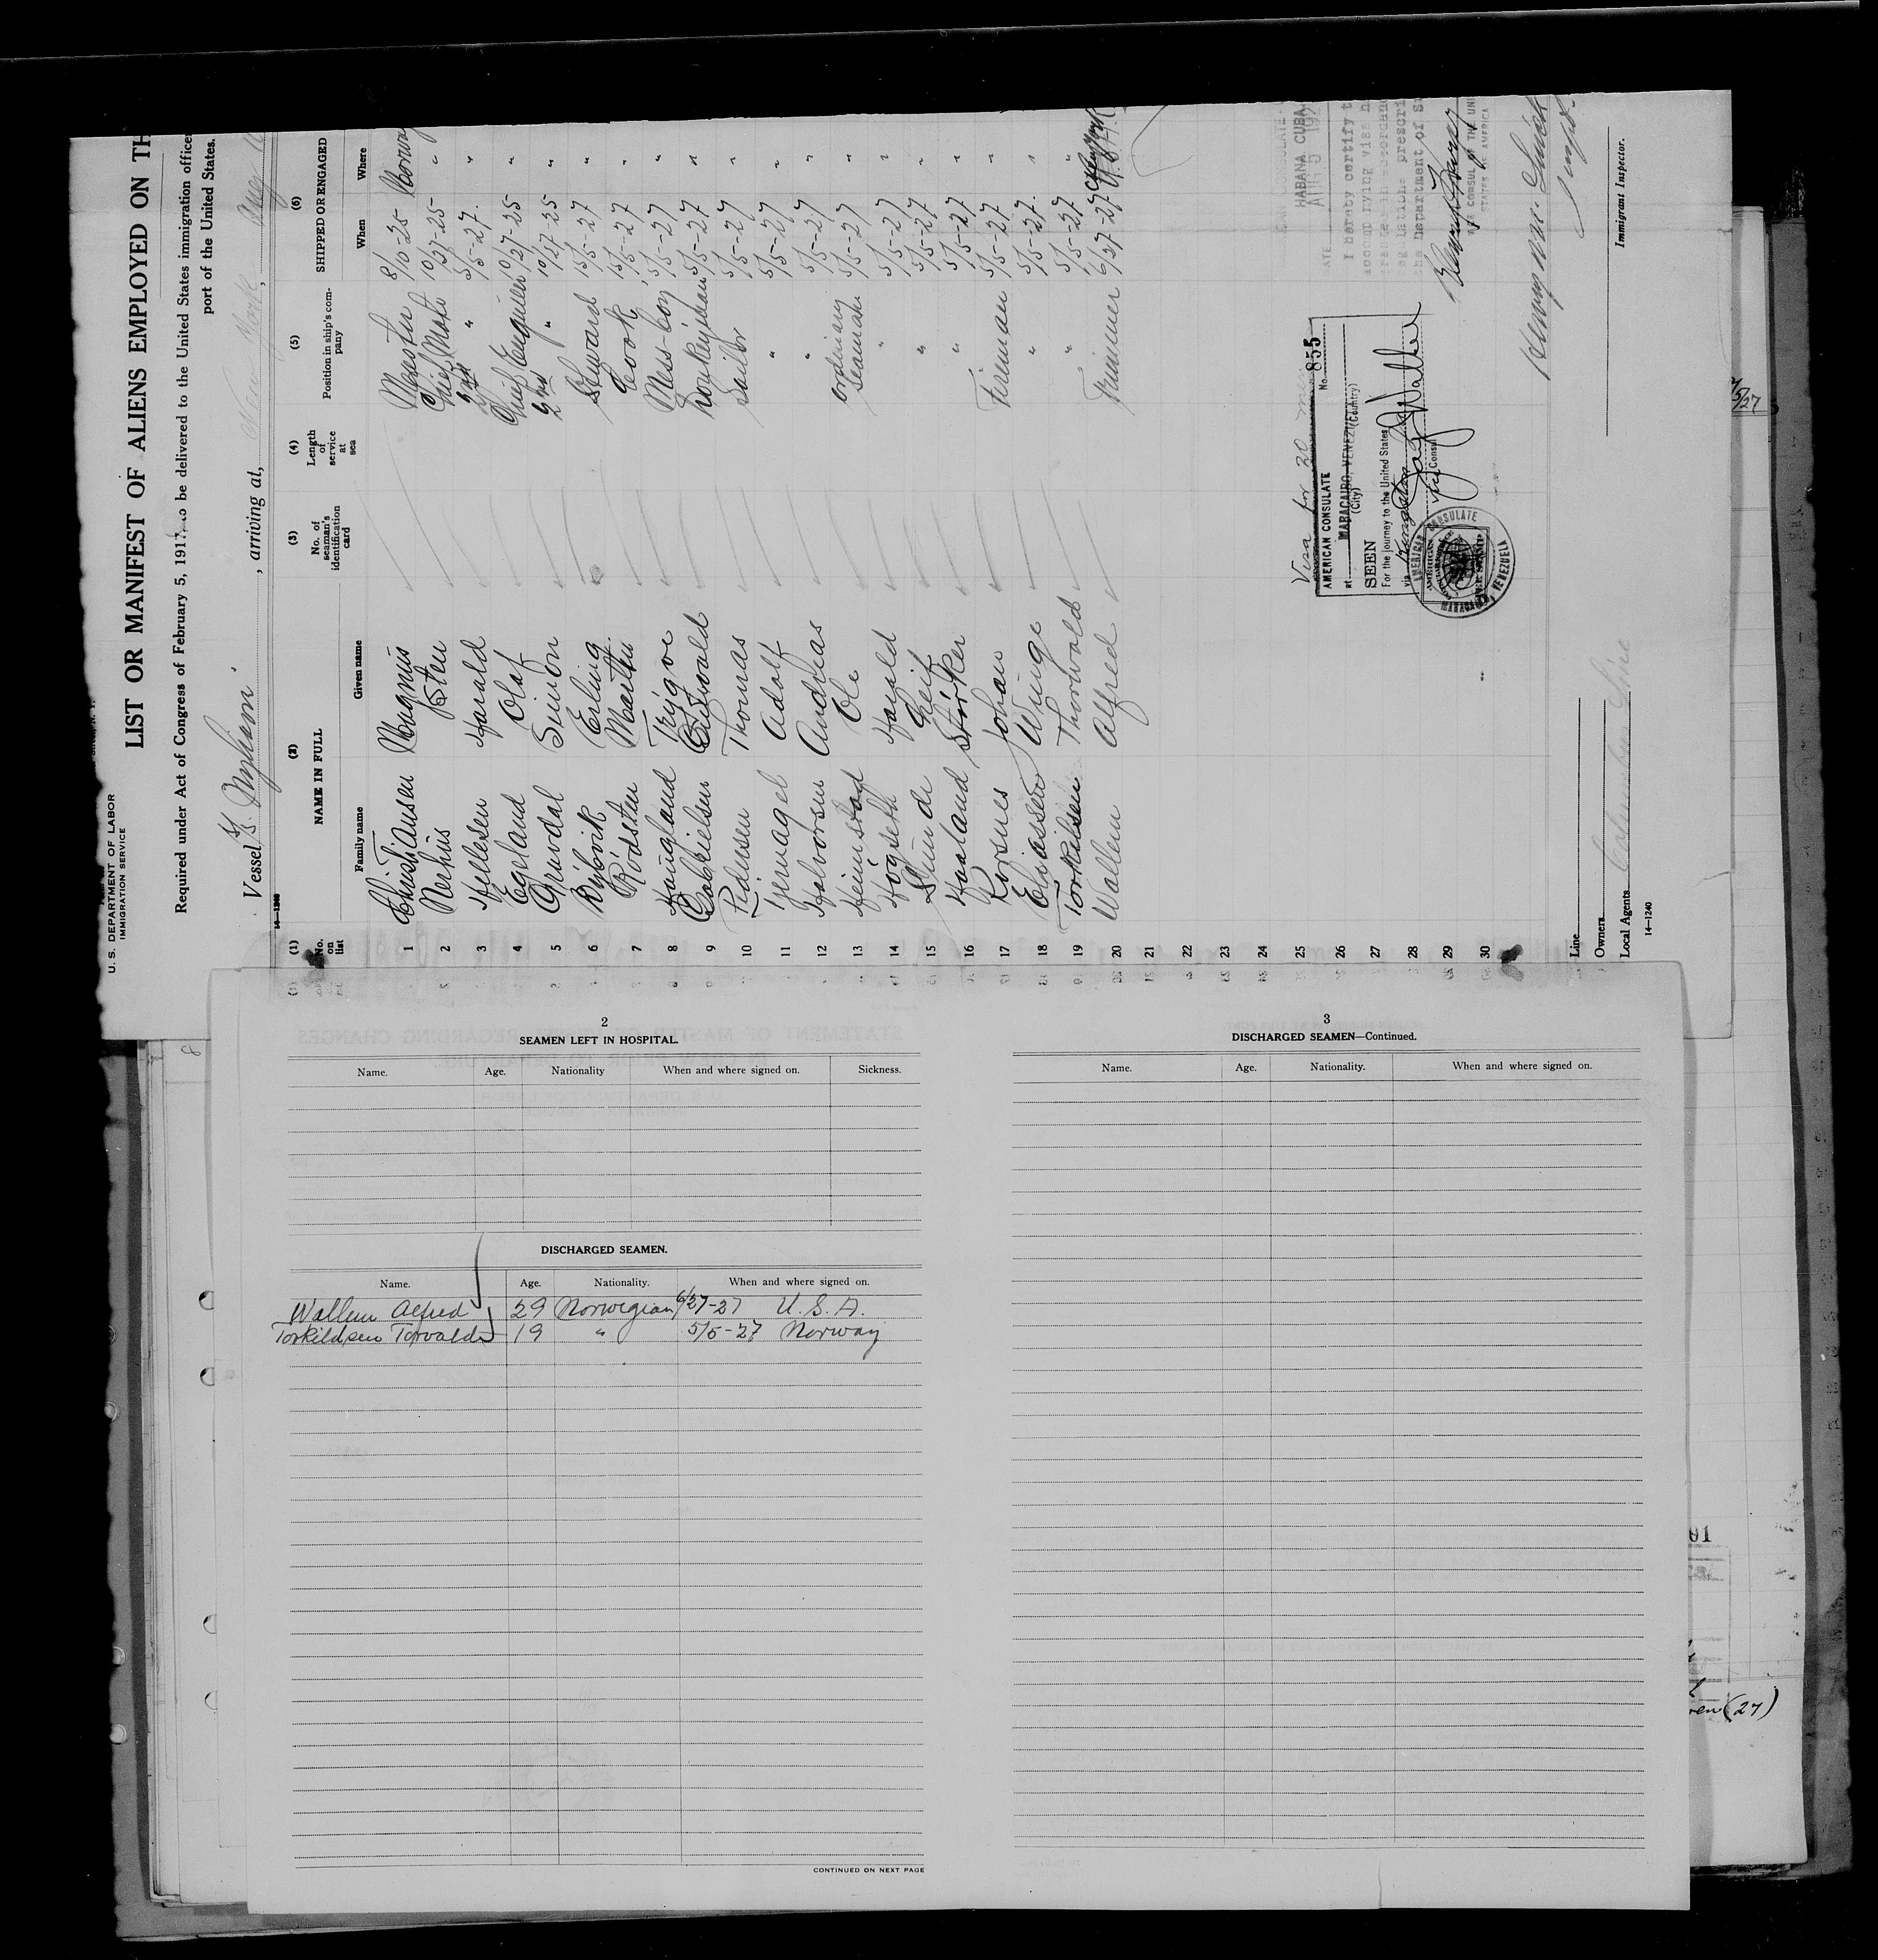 U. S. DEPARTMENT OF LABOR
IMMIGRATION SERVICE
LIST OR MANIFEST OF ALIENS EMPLOYED ON TH
Required under Act of Congress of February 5, 1917, to be delivered to the United States immigration office
port of the United States.
Vessel , arriving at, New York ,
14—1240
(1) (2) (3) (4) (5) (6)
No. on list NAME IN FULL No. of seaman's identification card Length of service at sea Position in ship's company SHIPPED OR ENGAGED
Family name Given name When Where
1 Christiansen Magnus Master 8/10-25 Norway
2 Nerhus Sten Chief Mate 10/27-25 "
3 Hellesen Harald 2nd " 5/5-27 "
4 Egeland Olaf Chief Engineer 10/27-25 "
5 Gruvdal Simon 2nd " 10/27-25 "
6 Erling Steward 5/5-27 "
7 Rödsten Martin Cook 5/5-27 "
8 Haugland Trigve Mess-boy 5/5-27 "
9 Gabrielsen Donkeyman 5/5-27 "
10 Pedersen Thomas Sailor 5/5-27 "
11 Adolf " 5/5-27 "
12 Halvorsen Andreas " 5/5-27 "
13 Heimstad Ole ordinary seaman 5/5-27 "
14 Högseth Harald " 5/5-27 "
15 Leif " 5/5-27 "
16 Haaland Störker " 5/5-27 "
17 Rorsnes Johan Fireman 5/5-27 "
18 Eliassen Winge " 5/5-27 "
19 Torkildsen Thorwald " 5/5-27 "
20 Wallem Alfred Trimmer 6/27-27
21
22
23
24
25
26
27
28
29
30
Visa for 20 men
No. 855
AMERICAN CONSULATE
at MARACAIBO, VENEZUELA
(City) (Country)
SEEN
For the journey to the United States
via Kingston
Consul
AMERICAN CONSULATE
VENEZUELA
HABANA CUBA
AUG 5 192
I hereby certify t
accompanying visa h
the Department of St
VICE CONSUL OF THE UNI
STATES OF AMERICA
Line
Owners
Local Agents Columbus Line
Immigrant Inspector.
14—1240
5/27
2
SEAMEN LEFT IN HOSPITAL.
Name. Age. Nationality When and where signed on. Sickness.
DISCHARGED SEAMEN.
Name. Age. Nationality. When and where signed on.
Wallem Alfred 29 Norwegian 6/27-27 U. S. A.
Torkildsen Torvald 19 " 5/5-27 Norway
CONTINUED ON NEXT PAGE
3
DISCHARGED SEAMEN—Continued.
Name. Age. Nationality. When and where signed on.
01
(27)